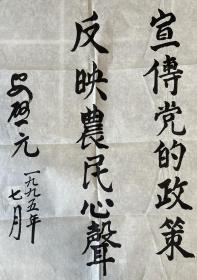 宣傳党的政策
反映農民心聲
一元
一九九五年
七月